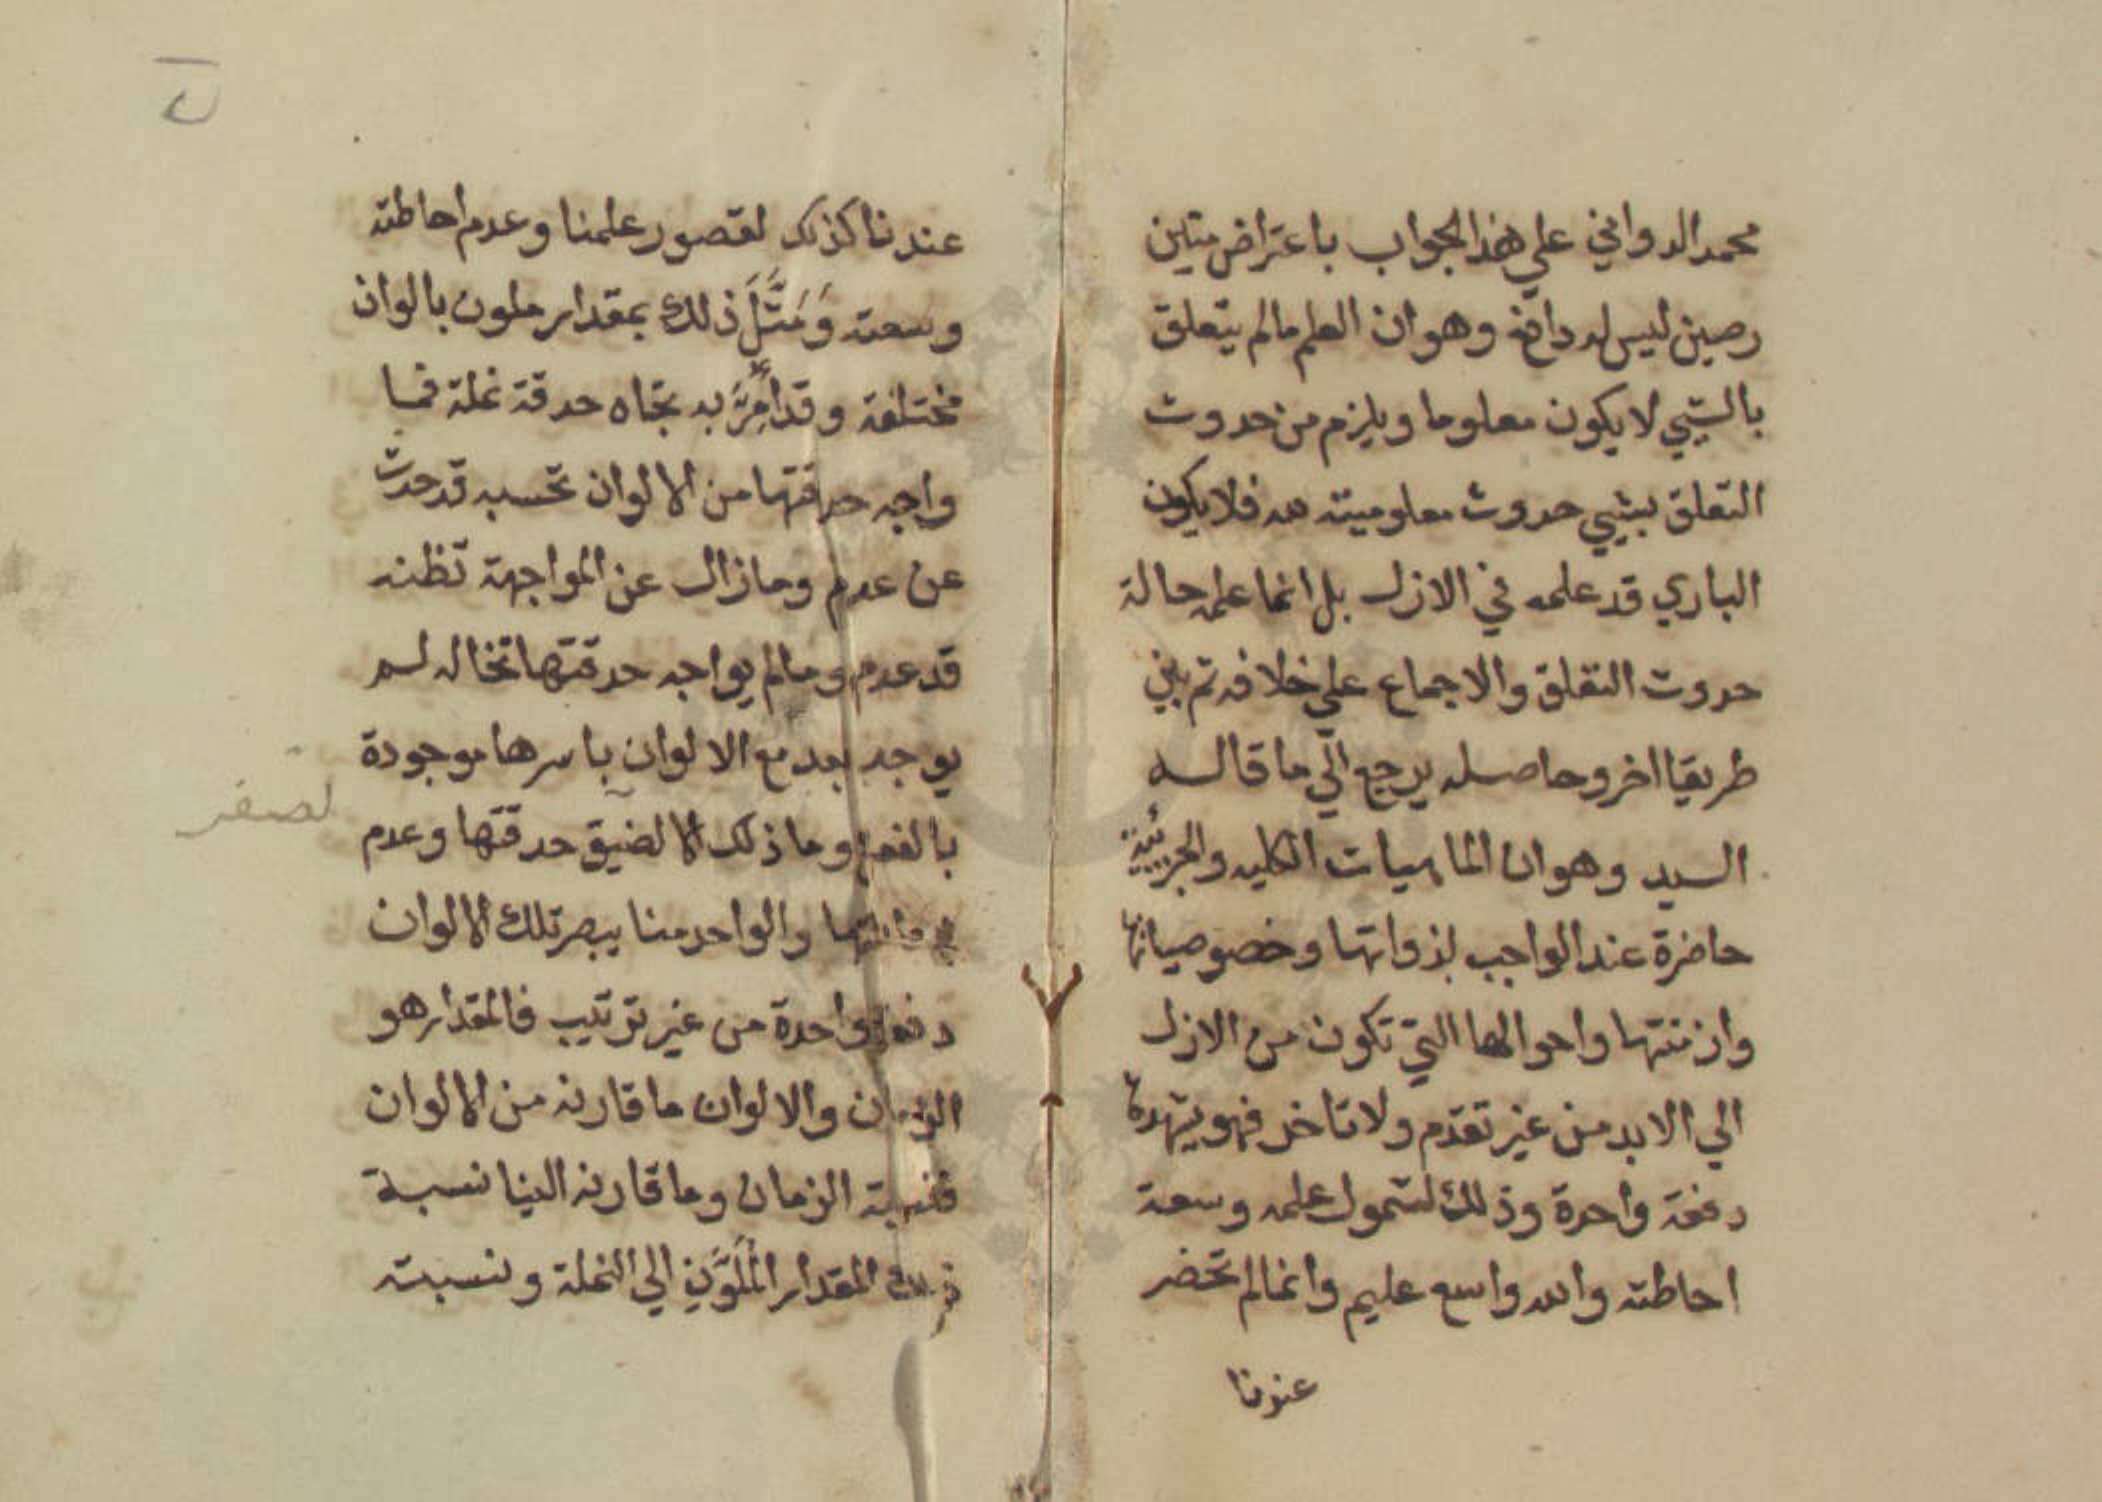 محمد الدواني علي هذا الجواب باعتراض متين
رصين ليس له دافع وهو ان العلم مالم يتعلق
بالشيي لا يكون معلوما ويلزم من حدوث
التعلق بشيي حدوث معلوميته له فلا يكون
الباري قد علمه في الازل بل انما علمه حالة
حدوث التعلق والاجماع علي خلافه ثم بني
طريقا اخر وحاصله يرجع الي ما قاله
السيد وهو ان الماهيات الكليه والجزئية
حاضرة عند الواجب بذواتها وخصوصياتها
وازمنتها واحوالها التي تكون من الازل
الي الابد من غير تقدم ولا تاخر فهو يشهدها
دفعة واحدة وذلك لشمول علمه وسعة
احاطته والله واسع عليم وانما لم تحضر
عندنا
عندنا كذلك لقصور علمنا وعدم احاطته
وسعته وَمَثَّلَ ذلك بمقدار ملون بالوان
مختلفة وقد اُمِرَّ به تجاه حدقة نملة فما
واجه حدقتها من الالوان تحسبه قد حدث
عن عدم وما زال عن المواجهة تظنه
قد عدم وما لم يواجه حدقتها تخاله لم
يوجد بعد مع الالوان باسرها موجودة
بالفعل وما ذلك الا لضيق حدقتها وعدم
والواحد منا يبصر تلك الالوان
دفعة واحدة من غير ترتيب فالمقدار هو
الزمان والالوان ما قارنه من الالوان
فنسبة الزمان وما قارنه الينا نسبة
ذلك المقدار المُلَوَّنِ الي النملة ونسبته